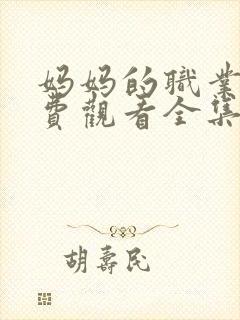 妈妈的職業
費觀看全集
胡壽民